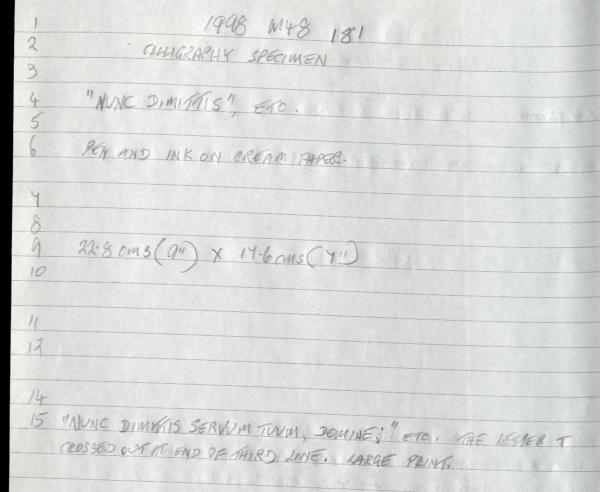 1 1998 M48 181
2 CALLIGRAPHY SPECIMEN
3
4 "NUNC DIMITTIS", ETC.
5
6 PEN AND INK ON CREAM PAPER.
7
8
9 22.8 cms (9") X 17.6 cms (7")
10
11
12
14
15 "NUNC DIMITTIS SERVUM TUUM, DOMINE;" ETC. THE LETTER T
CROSSED OUT AT END OF THIRD LINE. LARGE PRINT.